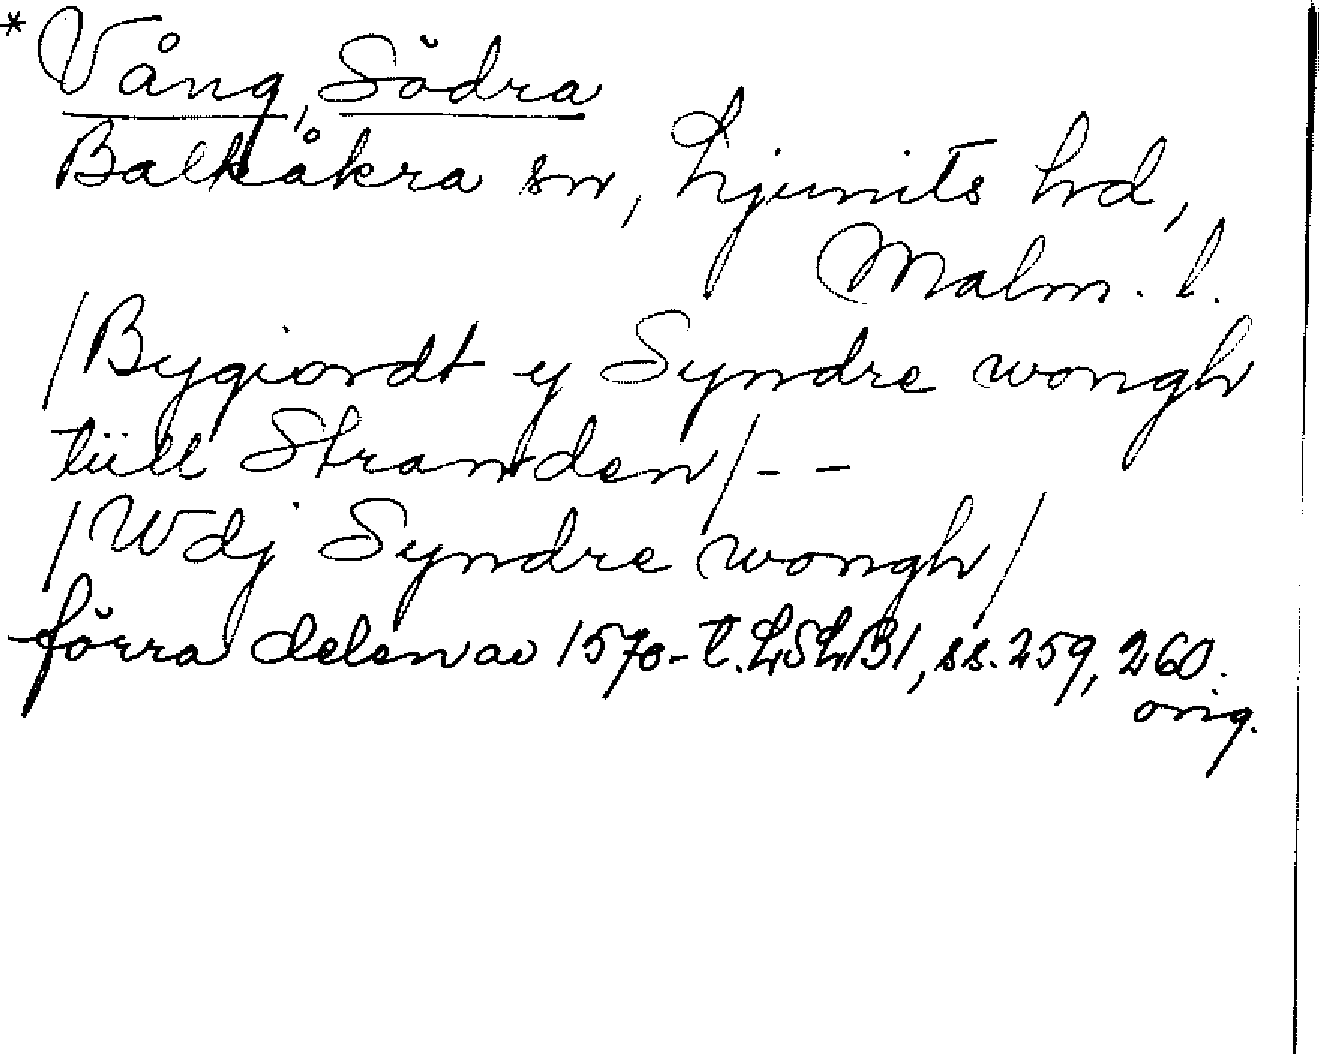 * Vång, Södra
Balkåkra sn, Ljunits hd,
Malm. l.
/Bygiordt y Syndre wongh
tiill Stranden/ - -
/Wdj Syndre wongh/
förra delen av 1570-t. LSLB1, ss. 259, 260.
orig.